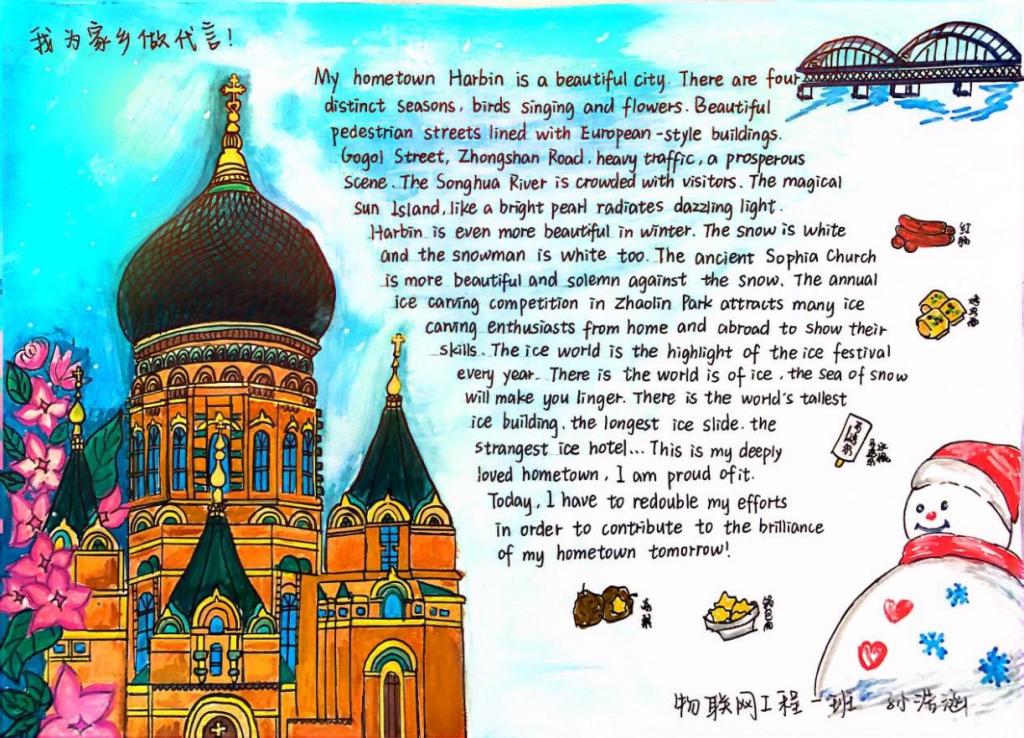 我为家乡做代言!
My hometown Harbin is a beautiful city. There are four
distinct seasons, birds singing and flowers. Beautiful
pedestrian streets lined with European-style buildings.
Gogol Street, Zhongshan Road, heavy traffic, a prosperous
scene. The Songhua River is crowded with visitors. The magical
Sun Island, like a bright pearl radiates dazzling light.
Harbin is even more beautiful in winter. The snow is white
and the snowman is white too. The ancient Sophia Church
is more beautiful and solemn against the snow. The annual
ice carving competition in Zhaolin Park attracts many ice
carving enthusiasts from home and abroad to show their
skills. The ice world is the highlight of the ice festival
every year. There is the world is of ice, the sea of snow
will make you linger. There is the world's tallest
ice building, the longest ice slide, the
strangest ice hotel... This is my deeply
loved hometown, I am proud of it.
Today, I have to redouble my efforts
in order to contribute to the brilliance
of my hometown tomorrow!
红肠
烤冷面
马迭尔
冻梨
锅包肉
物联网工程一班 孙浩涵